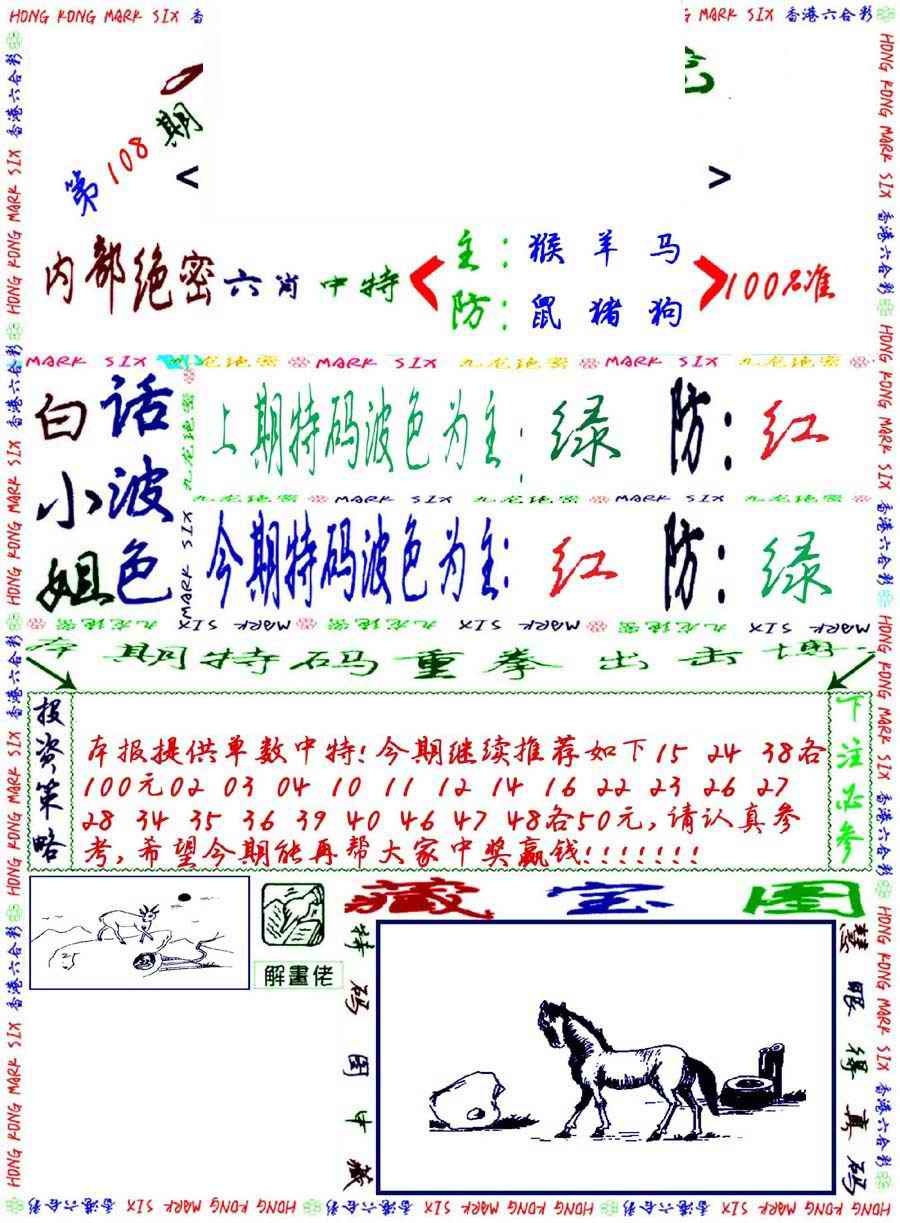 HONG KONG MARK SIX 香
MARK SIX 香港六合彩
第108期
< >
内部绝密六肖中特
主:猴 羊 马
防:鼠 猪 狗
100%准
MARK SIX 九龙绝密 MARK SIX 九龙绝密 MARK SIX 九龙绝密
白话
小波
姐色
上期特码波色为主:绿 防:红
九龙绝密 MARK SIX 九龙绝密 MARK SIX 九龙绝密
今期特码波色为主:红 防:绿
本期特码重拳出击
投资策略
本报提供单数中特!今期继续推荐如下15 24 38各
100元02 03 04 10 11 12 14 16 22 23 26 27
28 34 35 36 39 40 46 47 48各50元,请认真参
考,希望今期能再帮大家中奖赢钱!!!!!!!
下注必参
解畫佬
藏宝图
特码图中藏
慧眼得真码
HONG KONG MARK SIX 香港六合彩